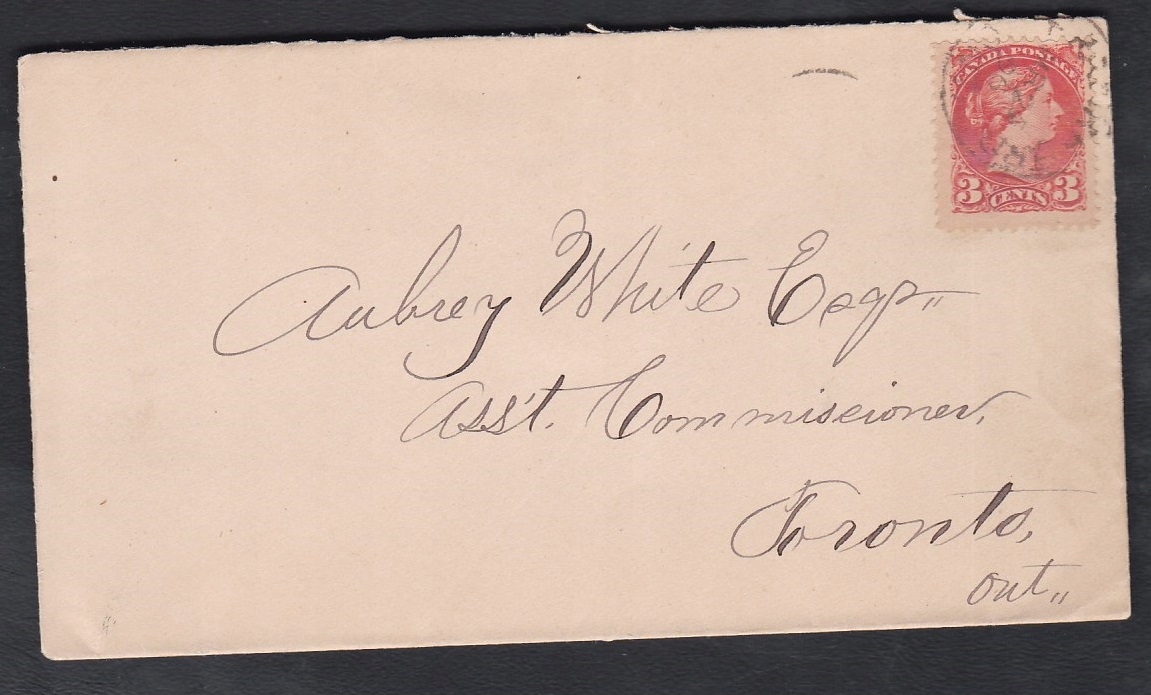 CANADA POSTAGE
3 CENTS 3
Aubrey White Esqr
Ass't. Commissioner,
Toronto,
Ont